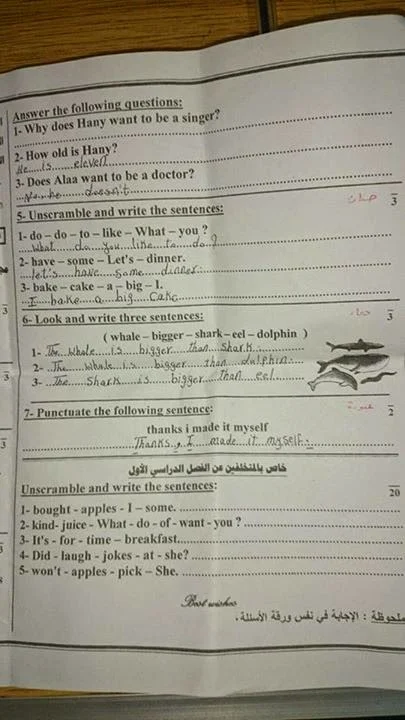 Answer the following questions:
1- Why does Hany want to be a singer?
2- How old is Hany?
He is eleven
3- Does Alaa want to be a doctor?
No, he doesn't
3
5- Unscramble and write the sentences:
1- do – do – to – like – What – you ?
What do you like to do?
2- have – some – Let's – dinner.
let's have some dinner.
3- bake – cake – a – big – I.
I bake a big cake
3
6- Look and write three sentences:
( whale – bigger – shark – eel – dolphin )
1- The Whale is bigger than shark.
2- The whale is bigger than dulphin.
3- The Shark is bigger than eel
2
7- Punctuate the following sentence:
thanks i made it myself
Thanks, I made it myself.
خاص بالمتخلفين عن الفصل الدراسي الأول
20
Unscramble and write the sentences:
1- bought - apples - I – some.
2- kind- juice - What - do - of - want - you ?
3- It's - for - time – breakfast.
4- Did - laugh - jokes - at - she?
5- won't - apples - pick – She.
Best wishes
ملحوظة : الإجابة في نفس ورقة الأسئلة .